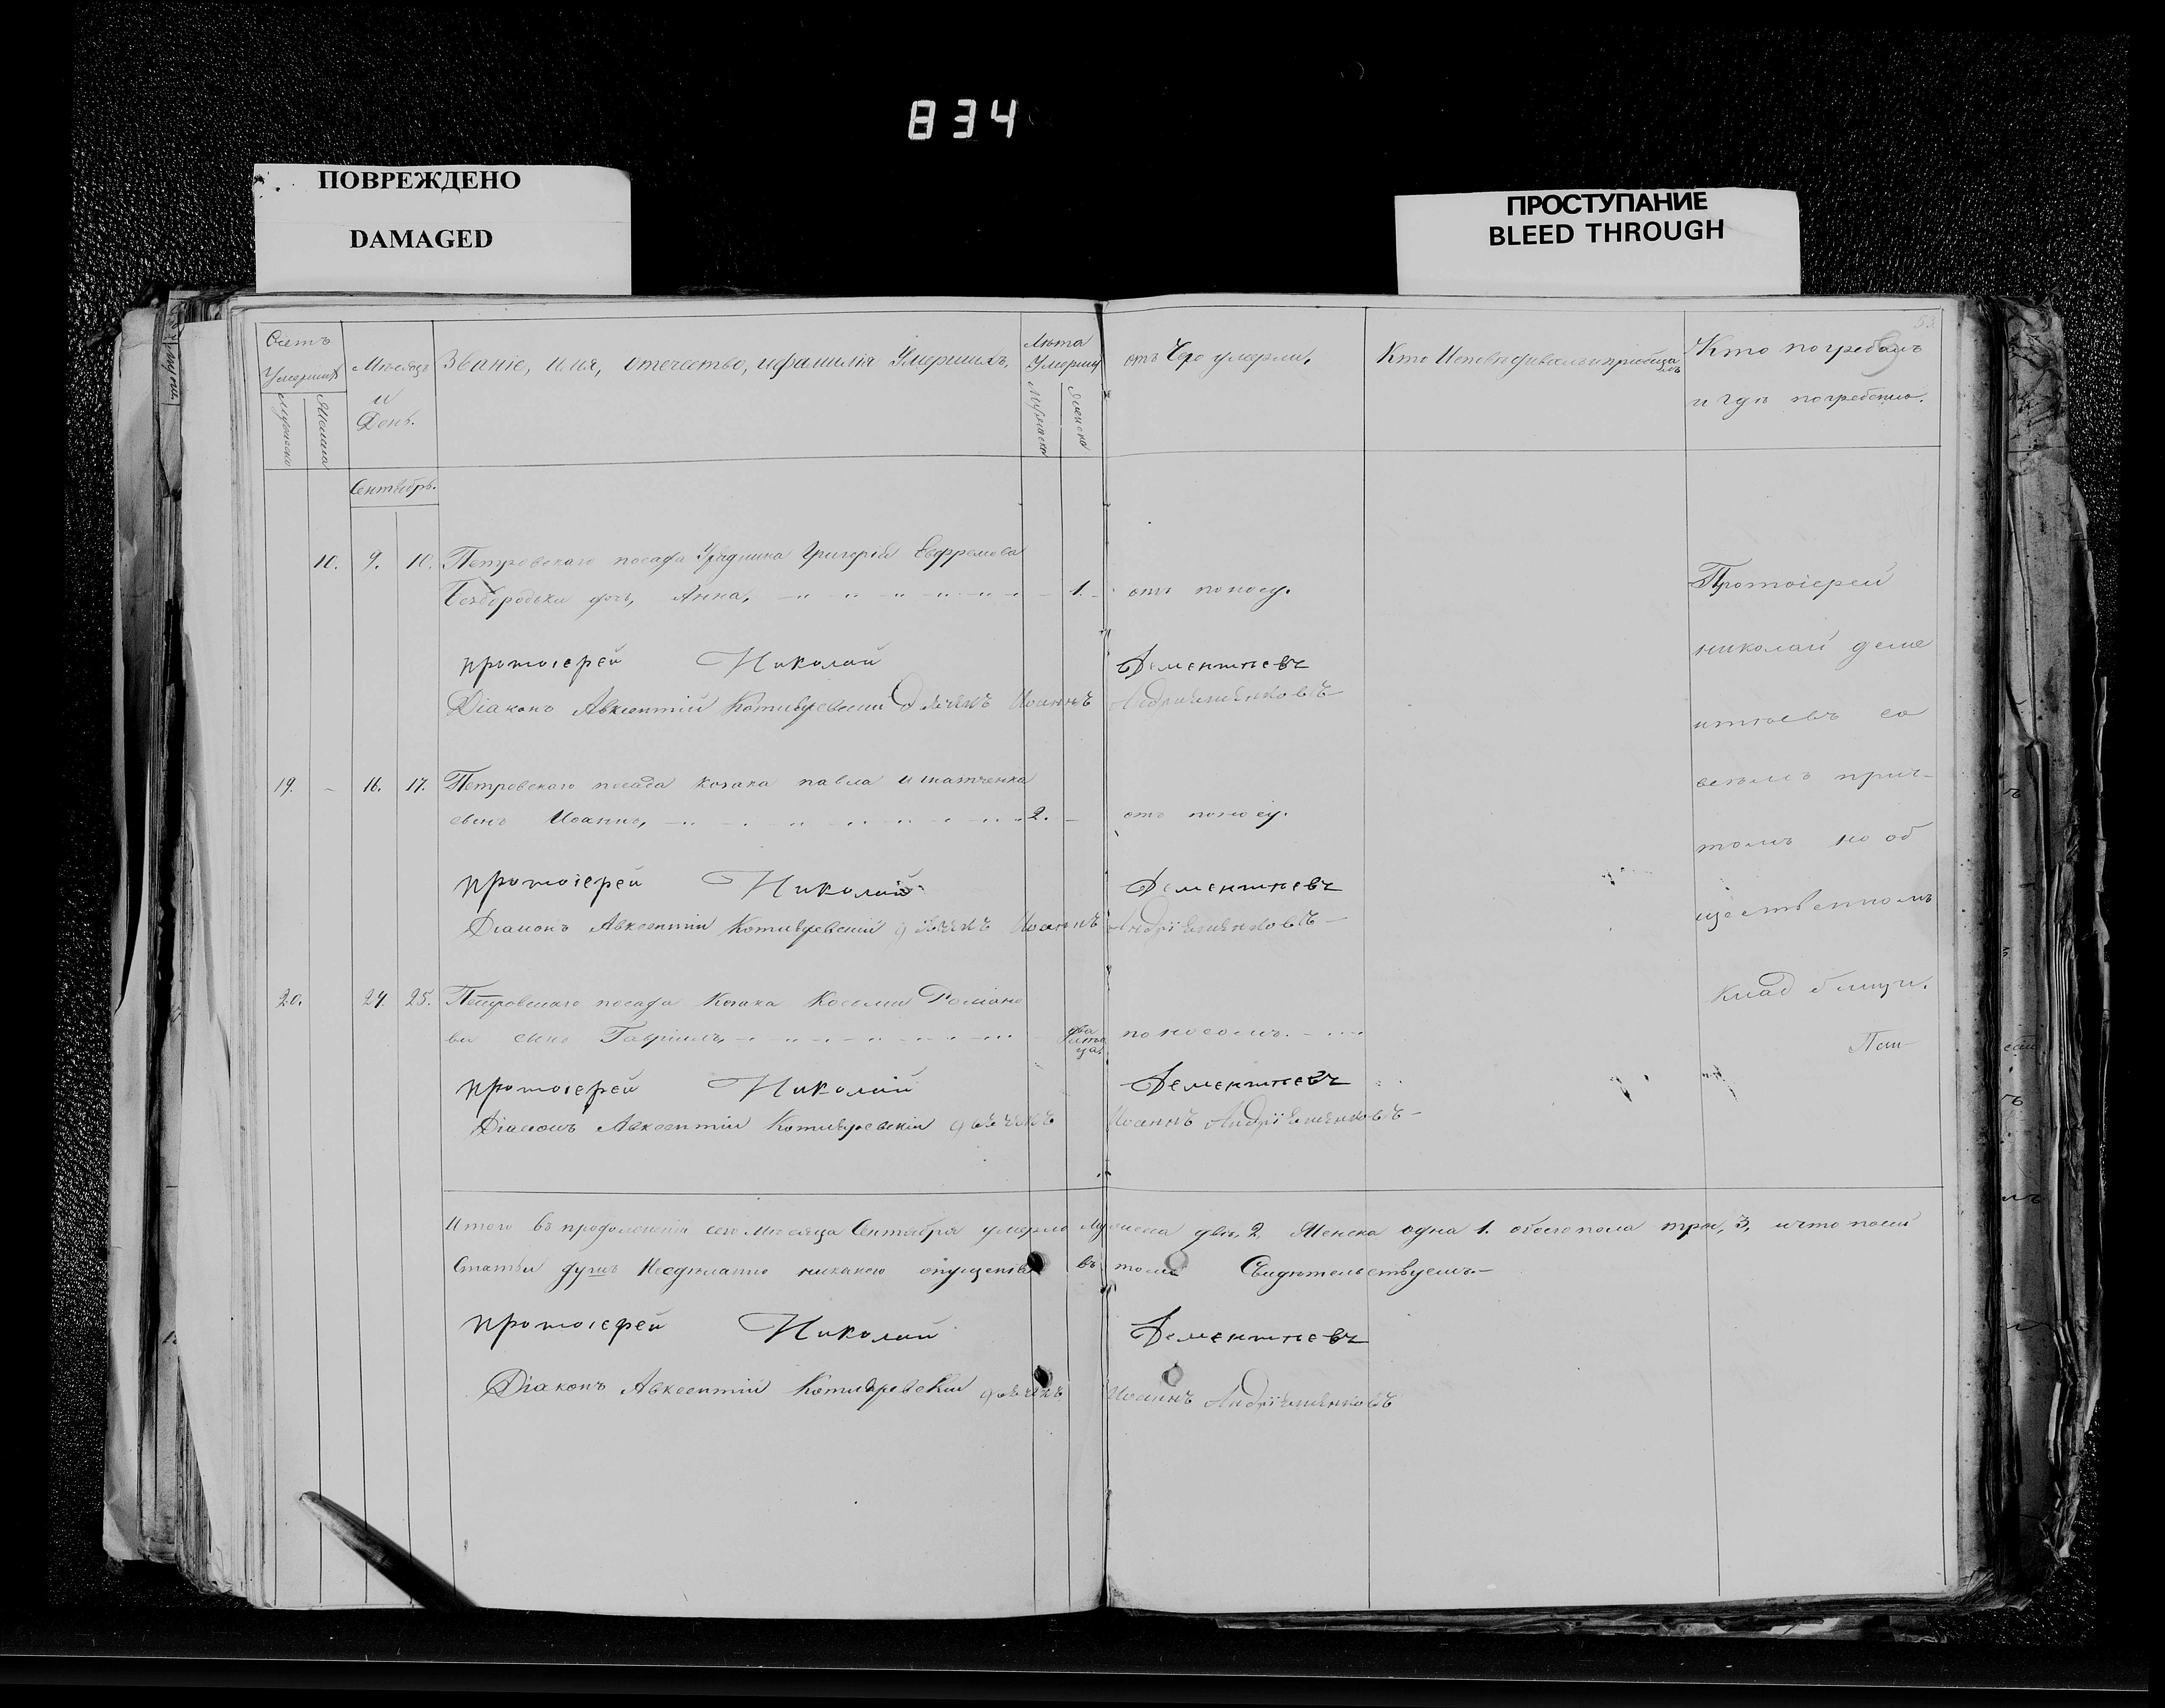 834
ПОВРЕЖДЕНО
DAMAGED
ПРОСТУПАНИЕ
BLEED THROUGH
53
Счетъ Умершихъ
Мужеска
Женска
Мѣсяцъ и День.
Званіе, имя, отечество, и фамилія Умершихъ,
Лѣта Умерших
Мужеска
Женска
отъ Чего умерли,
Кто Исповѣдывалъ и приобщалъ
Кто погребалъ
и гдѣ погребены.
Сентябрь.
10. 9. 10. Петровскаго посада Урядника Григорія Ефремова
Безбородька дочь, Анна, 1. отъ поносу.
протоіерей Николай Дементьевъ
Діаконъ Авксентій Котляревскій Дьячекъ Иоаннъ Андріешенковъ
19. 16. 17. Петровскаго посада козака павла Игнатченка
сынъ Иоаннъ, 2. отъ поносу.
протоіерей Николай Дементьевъ
Діаконъ Авксентій Котляревскій дьячекъ Иоаннъ Андріешенковъ
20. 24. 25. Петровскаго посада Козака Косьмы Романо
ва сынъ Гавріилъ, два мѣсяца. поносомъ.
протоіерей Николай Дементьевъ
Діаконъ Авксентій Котляревскій дьячекъ Иоаннъ Андріешенковъ
Протоіерей
николай деме
нтьевъ со
всѣмъ прич-
томъ на об
щественномъ
кладбищи.
Итого въ продолженіи сего Мѣсяца Сентября умерло Мужеска два, 2, Женска одна 1. обоего пола три, 3, и что по сей
Статьи душъ Несдѣланно никакого опущенія въ томъ Свидѣтельствуемъ.
протоіерей Николай Дементьевъ
Діаконъ Авксентій Котляревскій дьячекъ Иоаннъ Андріешенковъ